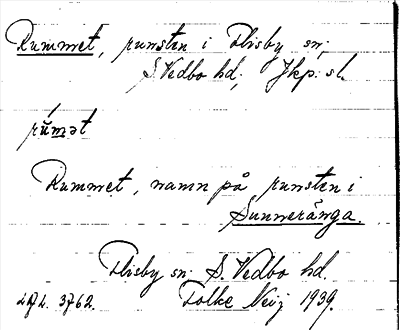 Rummet, runsten i Flisby sn;
S. Vedbo hd; Jkp. sl.
rúmət
Rummet, namn på runsten i
Sunneränga.
Flisby sn. S. Vedbo hd.
3762. Folke 1939.